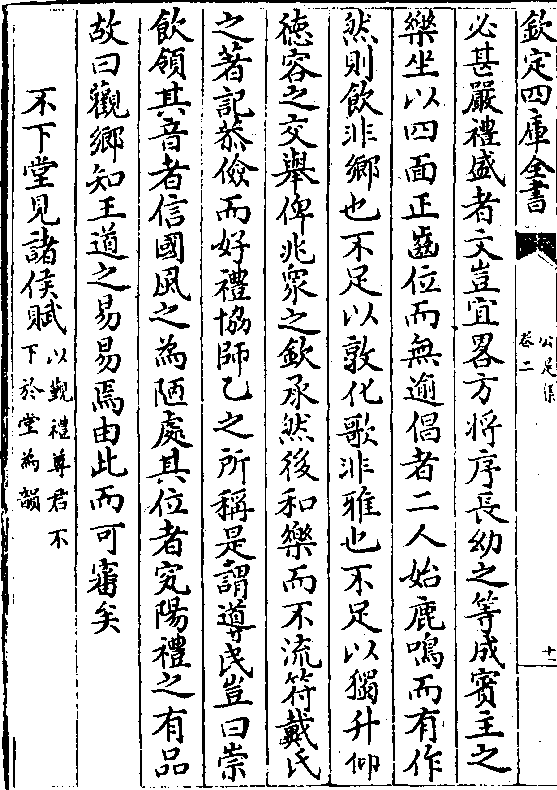 欽定四庫全書
公是集
卷二
十一
必甚嚴禮盛者文豈宜畧方將序長幼之等成賓主之
樂坐以四面正齒位而無逾倡者二人始鹿鳴而有作
然則飲非鄉也不足以敦化歌非雅也不足以獨升仰
徳容之交舉俾兆衆之欽承然後和樂而不流符戴氏
之著記恭儉而好禮協師乙之所稱是謂導民豈曰崇
飲領其音者信國風之為陋處其位者宛陽禮之有品
故曰觀鄉知王道之易易焉由此而可審矣
不下堂見諸侯賦以觀禮尊君不
下於堂為韻